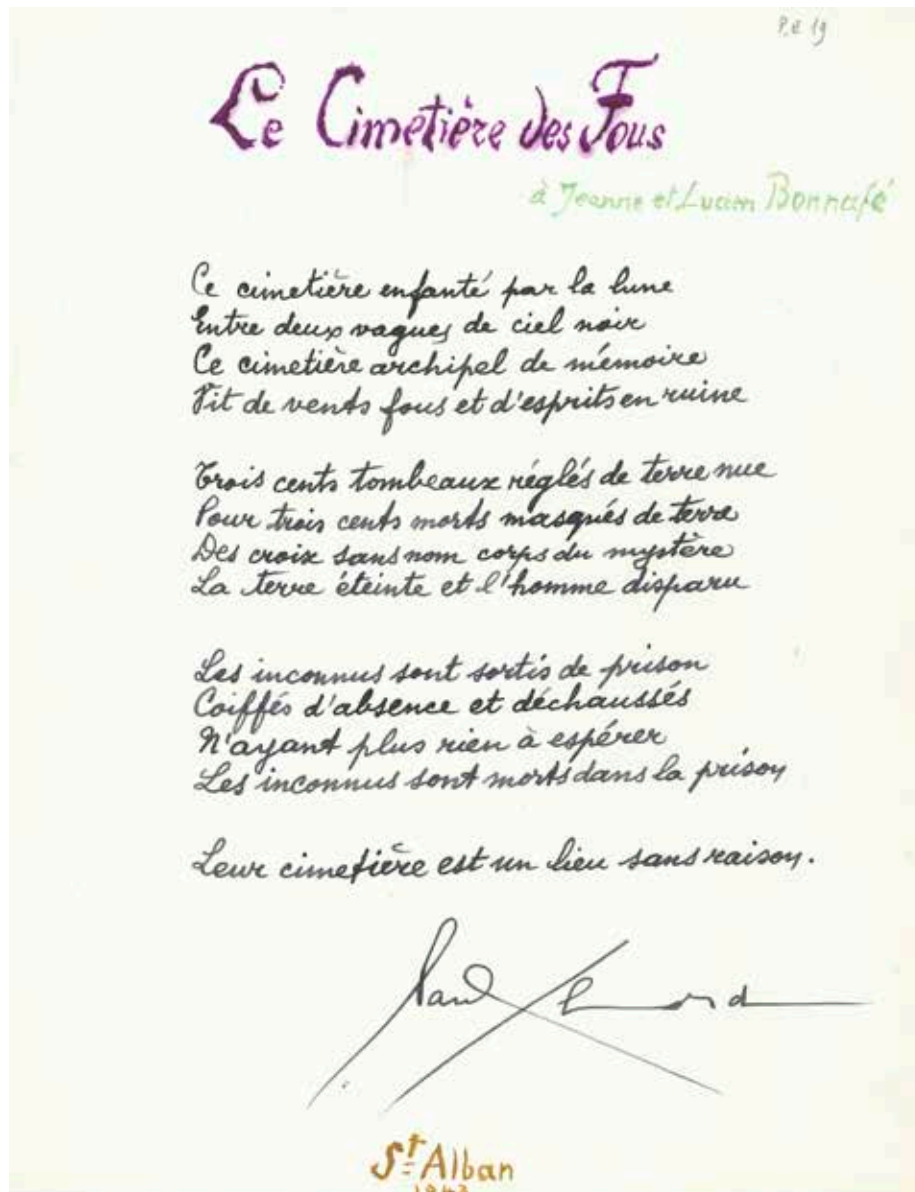 P.E 19
Le Cimetière des Fous
à Jeanne et Lucien Bonnafé
Ce cimetière enfanté par la lune
Entre deux vagues de ciel noir
Ce cimetière archipel de mémoire
Vit de vents fous et d'esprits en ruine
Trois cents tombeaux réglés de terre nue
Pour trois cents morts masqués de terre
Des croix sans nom corps du mystère
La terre éteinte et l'homme disparu
Les inconnus sont sortis de prison
Coiffés d'absence et déchaussés
N'ayant plus rien à espérer
Les inconnus sont morts dans la prison
Leur cimetière est un lieu sans raison.
Paul Eluard
St Alban
1943